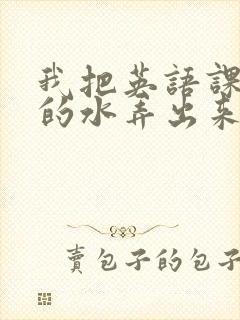 我把英語課
的水弄出來
賣包子的包子